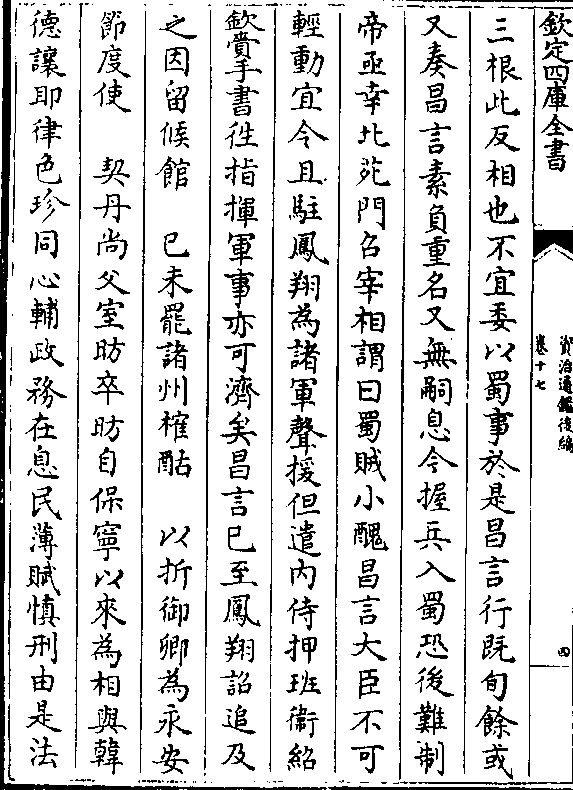 欽定四庫全書
資治通鑑後編
卷十七
四
三根此反相也不宜委以蜀事於是昌言行既旬餘或
又奏昌言素負重名又無嗣息今握兵入蜀恐後難制
帝亟幸北苑門召宰相謂曰蜀賊小醜昌言大臣不可
輕動宜令且駐鳳翔為諸軍聲援但遣内侍押班衛紹
欽賫手書徃指揮軍事亦可濟矣昌言已至鳳翔詔追及
之因留候館　己未罷諸州榷酤　以折御卿為永安
節度使　契丹尚父室昉卒昉自保寧以來為相與韓
德讓耶律色珍同心輔政務在息民薄賦慎刑由是法